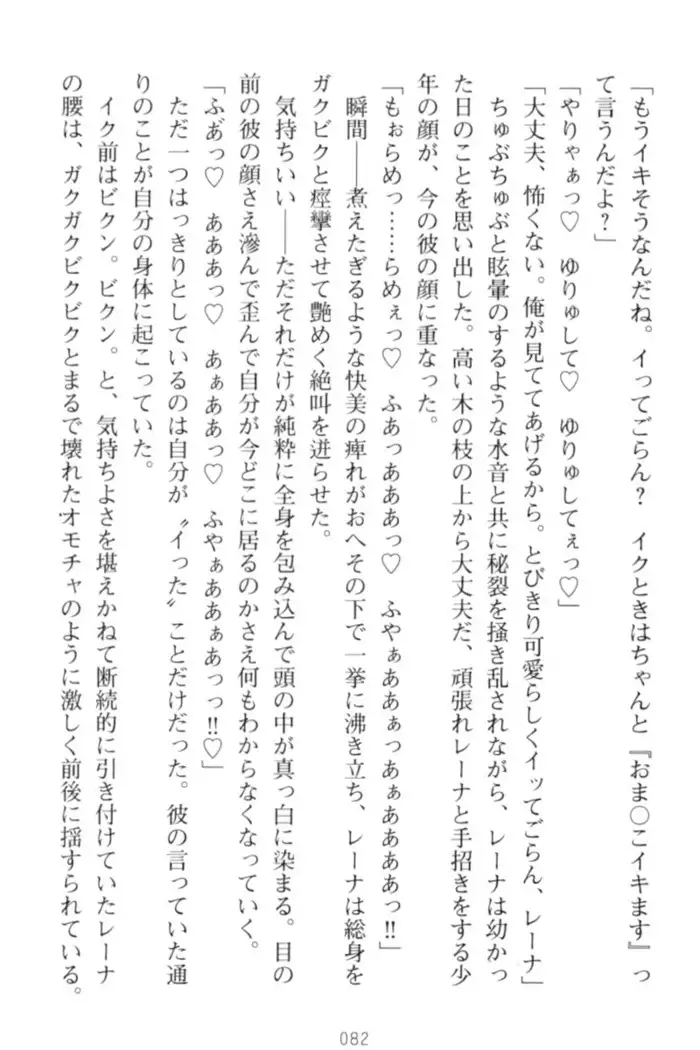 「もうイキそうなんだね。イってごらん？　イクときはちゃんと『おま〇こイキます』っ
て言うんだよ？」
「やりゃぁっ♡　ゆりゅして♡　ゆりゅしてぇっ♡」
「大丈夫、怖くない。俺が見ててあげるから。とびきり可愛らしくイッてごらん、レーナ」
　ちゅぷちゅぷと眩暈のするような水音と共に秘裂を掻き乱されながら、レーナは幼かっ
た日のことを思い出した。高い木の枝の上から大丈夫だ、頑張れレーナと手招きをする少
年の顔が、今の彼の顔に重なった。
「もぉらめっ……らめぇっ♡　ふあっあああっ♡　ふやぁああぁっあぁああああっ‼」
　瞬間――煮えたぎるような快美の痺れがおへその下で一挙に沸き立ち、レーナは総身を
ガクビクと痙攣させて艶めく絶叫を迸らせた。
　気持ちいい――ただそれだけが純粋に全身を包み込んで頭の中が真っ白に染まる。目の
前の彼の顔さえ滲んで歪んで自分が今どこに居るのかさえ何もわからなくなっていく。
「ふあ゛っ♡　あああっ♡　あぁああっ♡　ふやぁああぁあっっ‼♡」
　ただ一つはっきりとしているのは自分が〝イった〟ことだけだった。彼の言っていた通
りのことが自分の身体に起こっていた。
　イク前はビクン。ビクン。と、気持ちよさを堪えかねて断続的に引き付けていたレーナ
の腰は、ガクガクビクビクとまるで壊れたオモチャのように激しく前後に揺すられている。
082